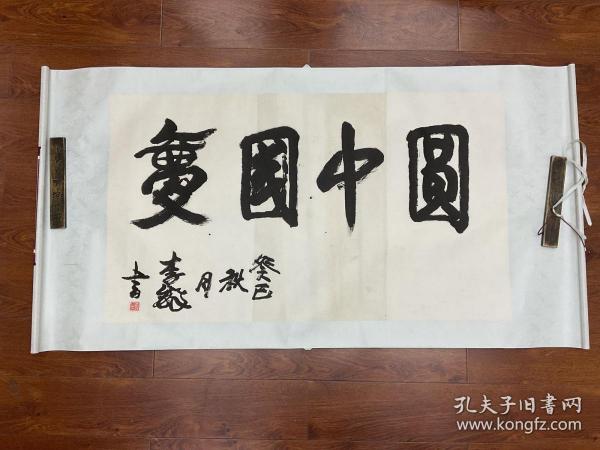 圓中國夢
癸巳
秋
月
李
書
孔夫子旧書网
www.kongfz.com